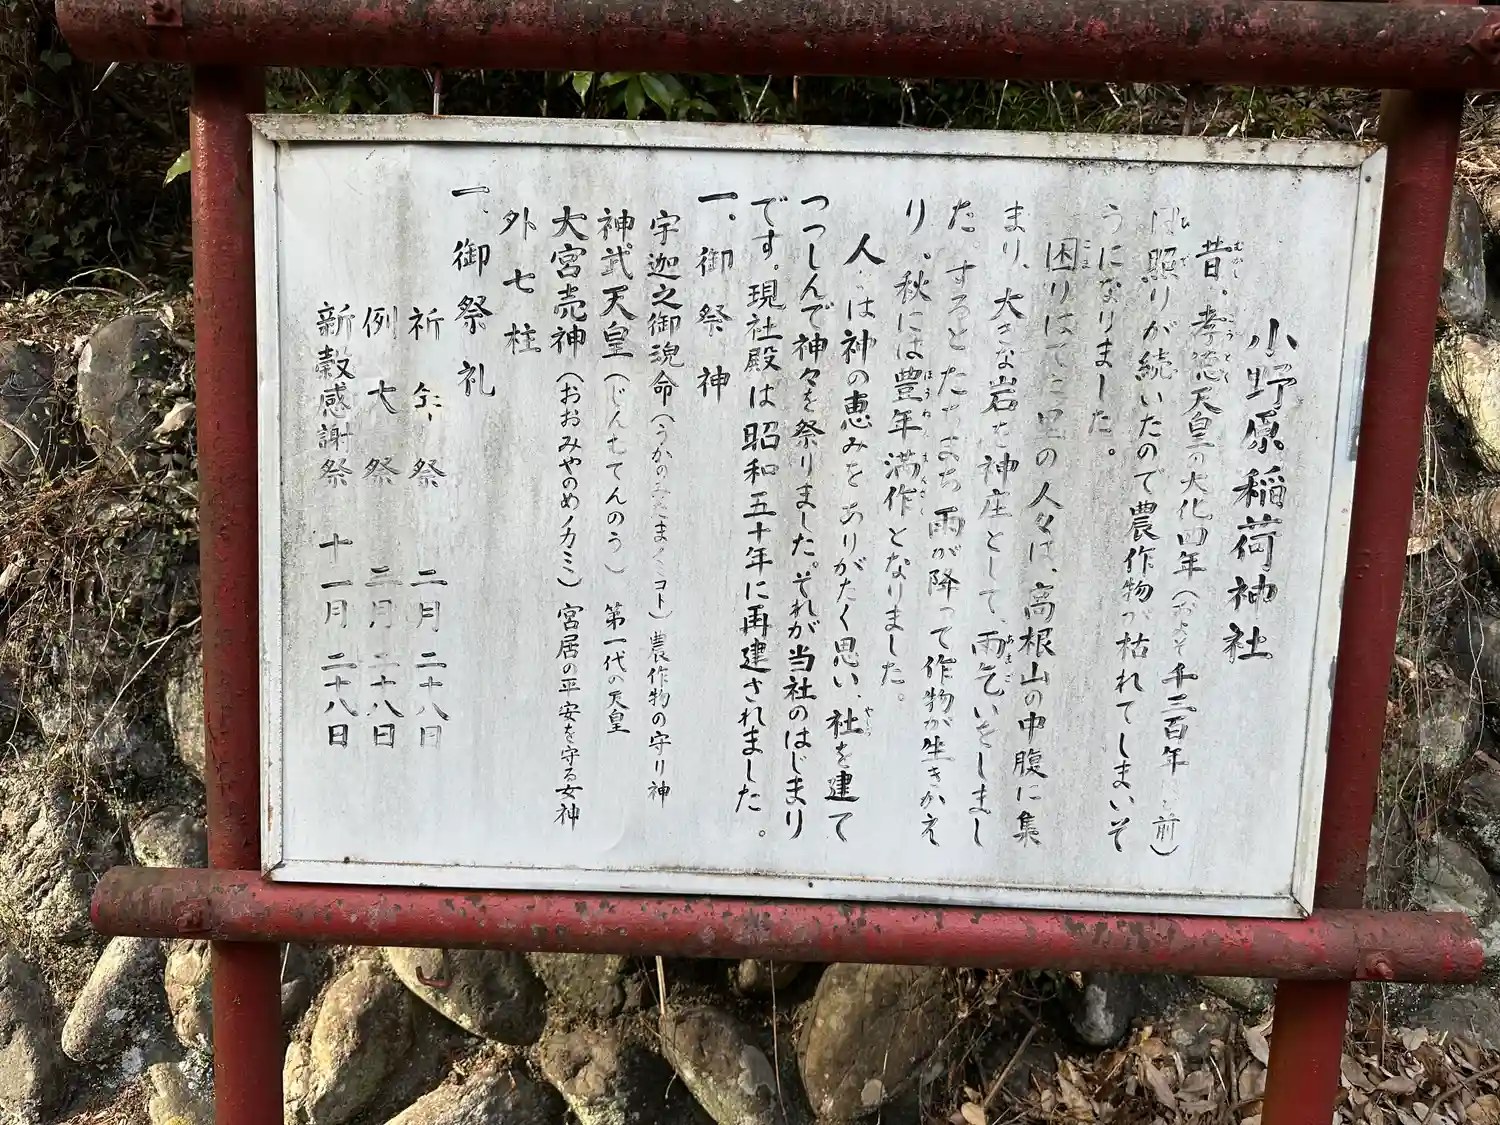 小野原稲荷神社
昔、孝徳天皇の大化四年(およそ千三百年 前)
は照りが続いたので農作物が枯れてしまいそ
うになりました。
困りはてた里の人々は、高根山の中腹に集
まり、大きな岩を神座として、雨乞いをしまし
た。するとたちまち雨が降って作物が生きかえ
り、秋には豊年満作となりました。
人々は神の恵みをありがたく思い、社を建て
つつしんで神々を祭りました。それが当社のはじまり
です。現社殿は昭和五十年に再建されました。
一、御祭神
宇迦之御魂命(うかのみたまのミコト)農作物の守り神
神武天皇(じんむてんのう) 第一代の天皇
大宮売神(おおみやのめノカミ)宮居の平安を守る女神
外七柱
一、御祭礼
祈年祭 二月二十八日
例大祭 三月二十八日
新穀感謝祭 十一月二十八日